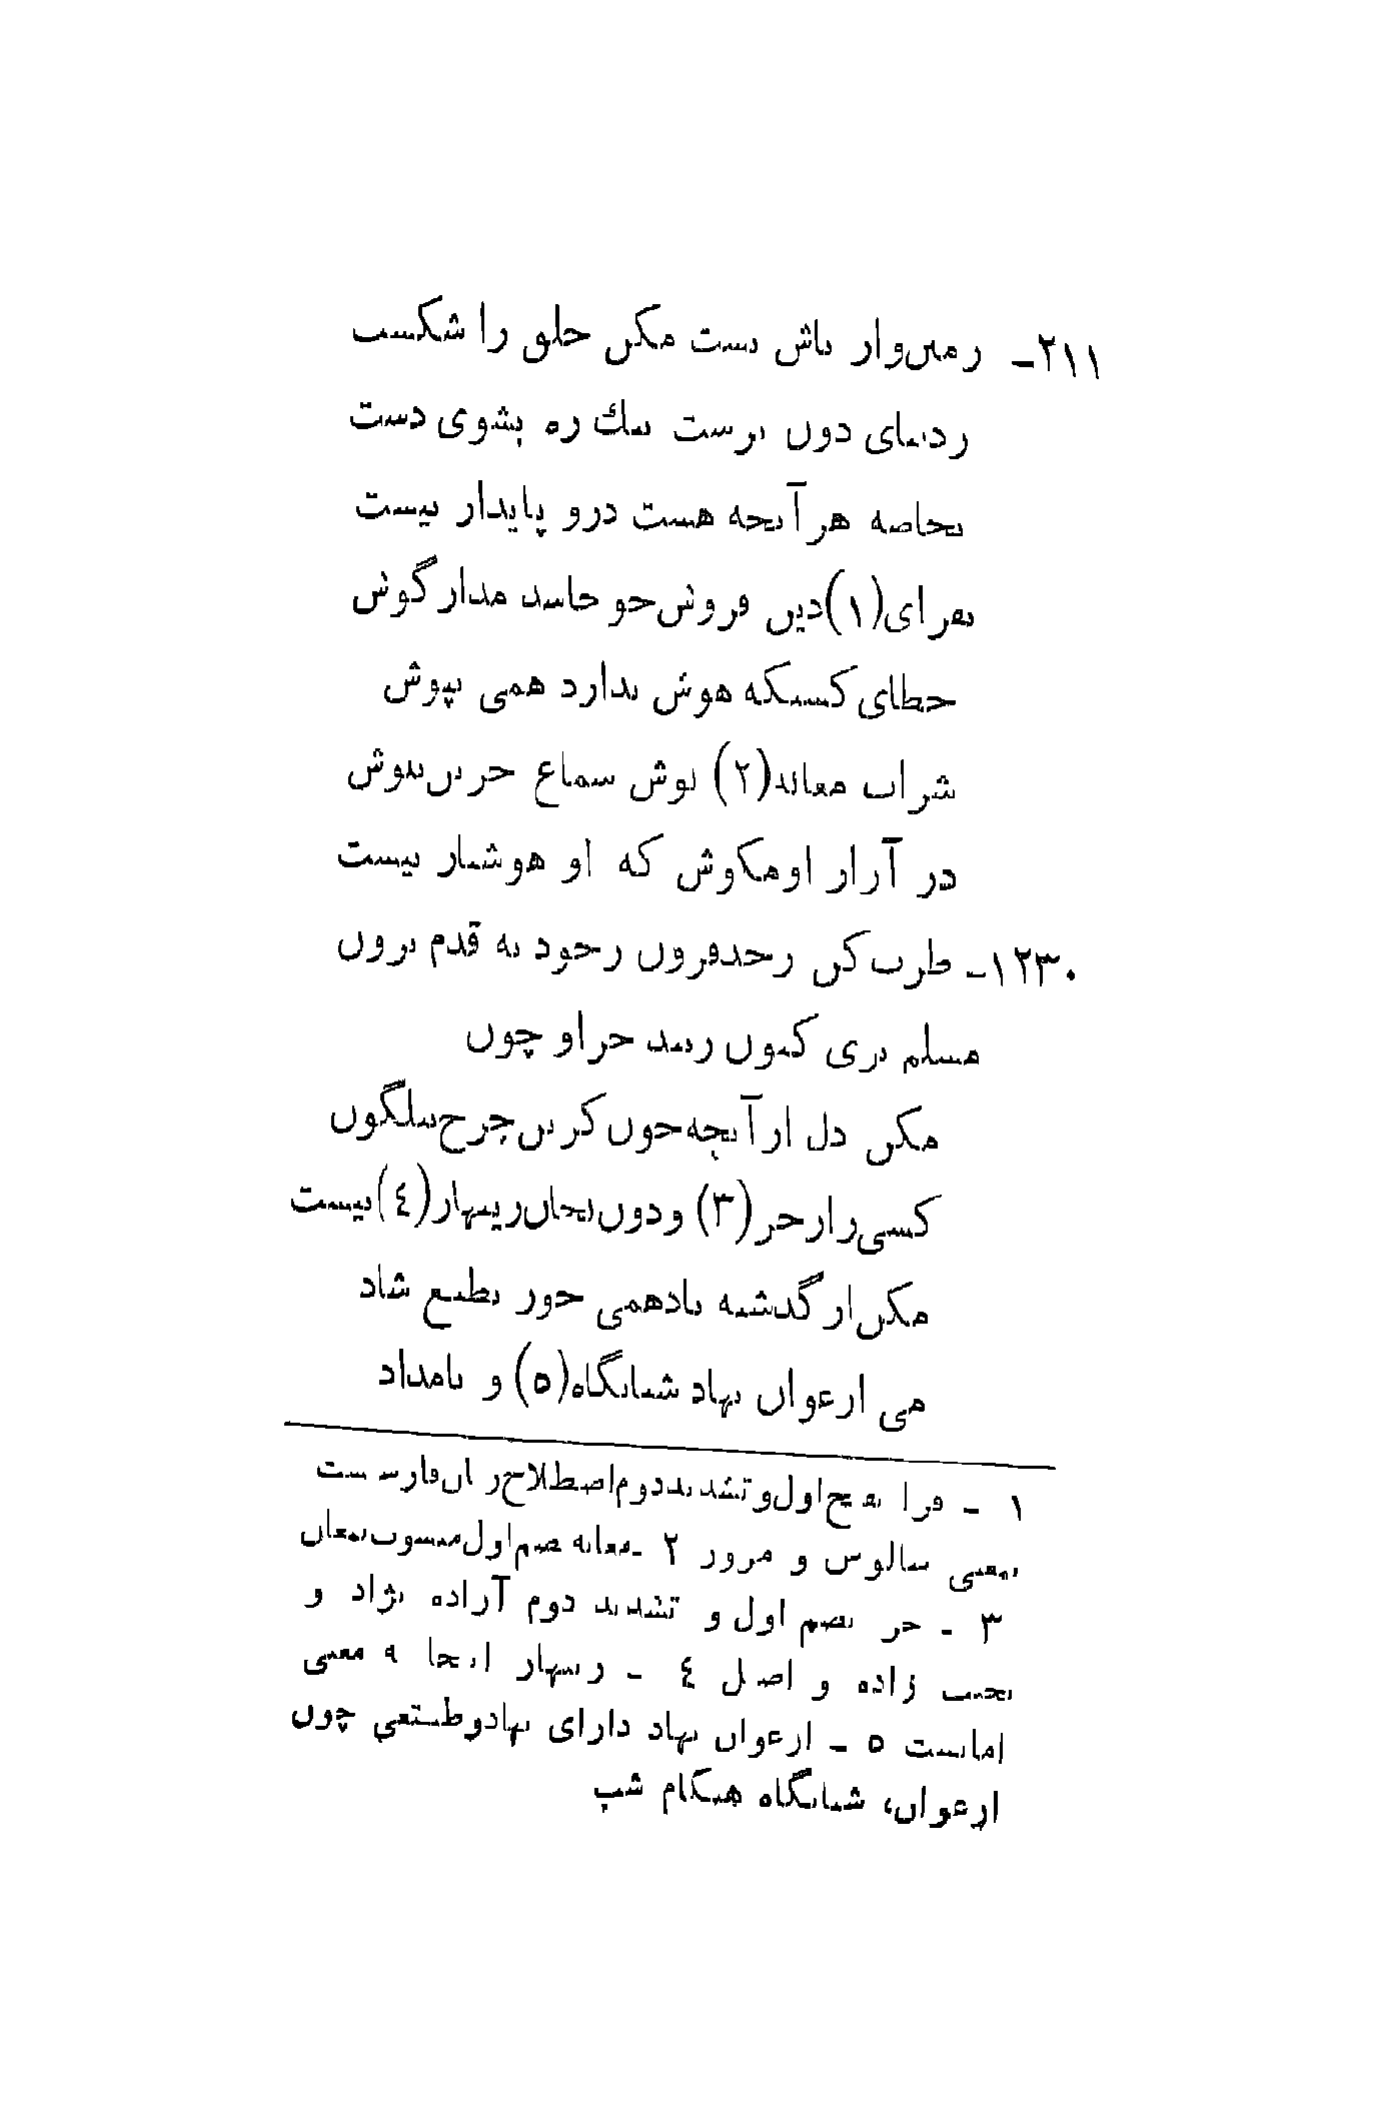 ۲۱۱- زمین‌وار باش پست مکن خلق را شکست
ز دنیای دون پرست بیك ره بشوی دست
بخاصه هر آنچه هست درو پایدار نیست
بفرای(۱)دین فروش‌چو حاسد مدار گوش
خطای کسیکه هوش ندارد همی بپوش
شراب مغانه(۲) نوش سماع حزین‌نیوش
در آزار اومکوش که او هوشیار نیست
۱۲۳۰- طرب کن زحدفزون زخود نه قدم برون
مسلم بزی کنون رسد جز او چون
مکن دل ازآنچه‌خون کزین‌چرخ‌نیلگون
کسی‌رازحر(۳) ودون‌بجان‌زینهار(٤)نیست
مکن‌از گذشته یادهمی خور بطبع شاد
می ارغوان نهاد شبانگاه(٥) و بامداد
۱ - فرا بفتح‌اول‌وتشدیددوم‌اصطلاح‌زبان‌فارسیست
بمعنی سالوس و مزور ۲ -مغانه بضم‌اول‌منسوب‌بمغان
۳ - حر بضم اول و تشدید دوم آزاده نژاد و
نجیب زاده و اصیل ٤ - زینهار اینجا به معنی
امانست ٥ - ارغوان نهاد دارای نهادوطبیعتی چون
ارغوان، شبانگاه هنگام شب